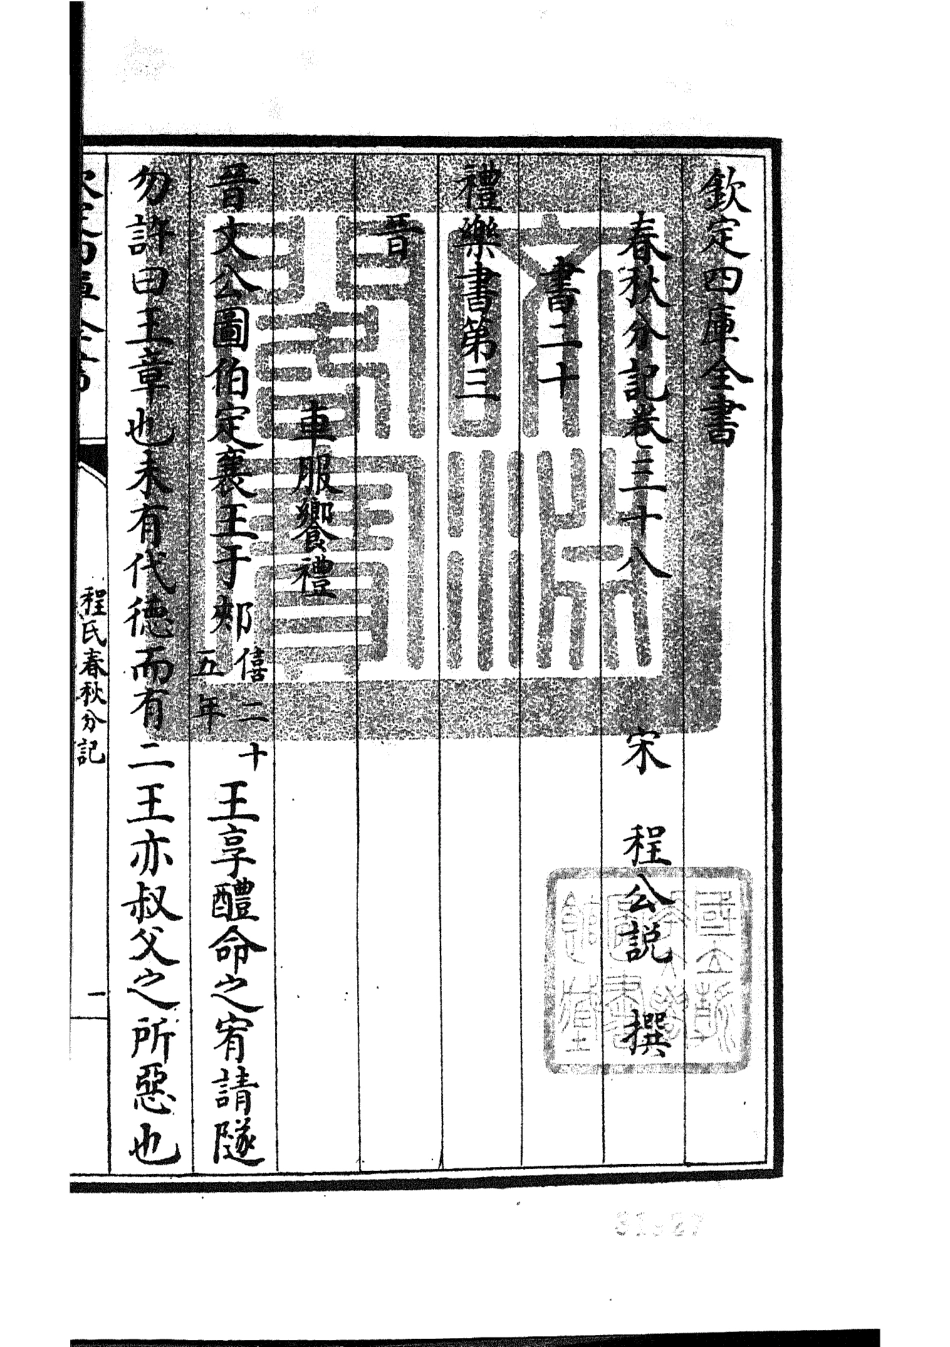 欽定四庫全書
春秋分記卷三十八　宋　程公説　撰
書二十
禮樂書第三
晉
車服饗禮
晉文公圖伯定襄王于郟僖二十五年王享醴命之宥請隧
勿許曰王章也未有代德而有二王亦叔父之所惡也
程氏春秋分記
一